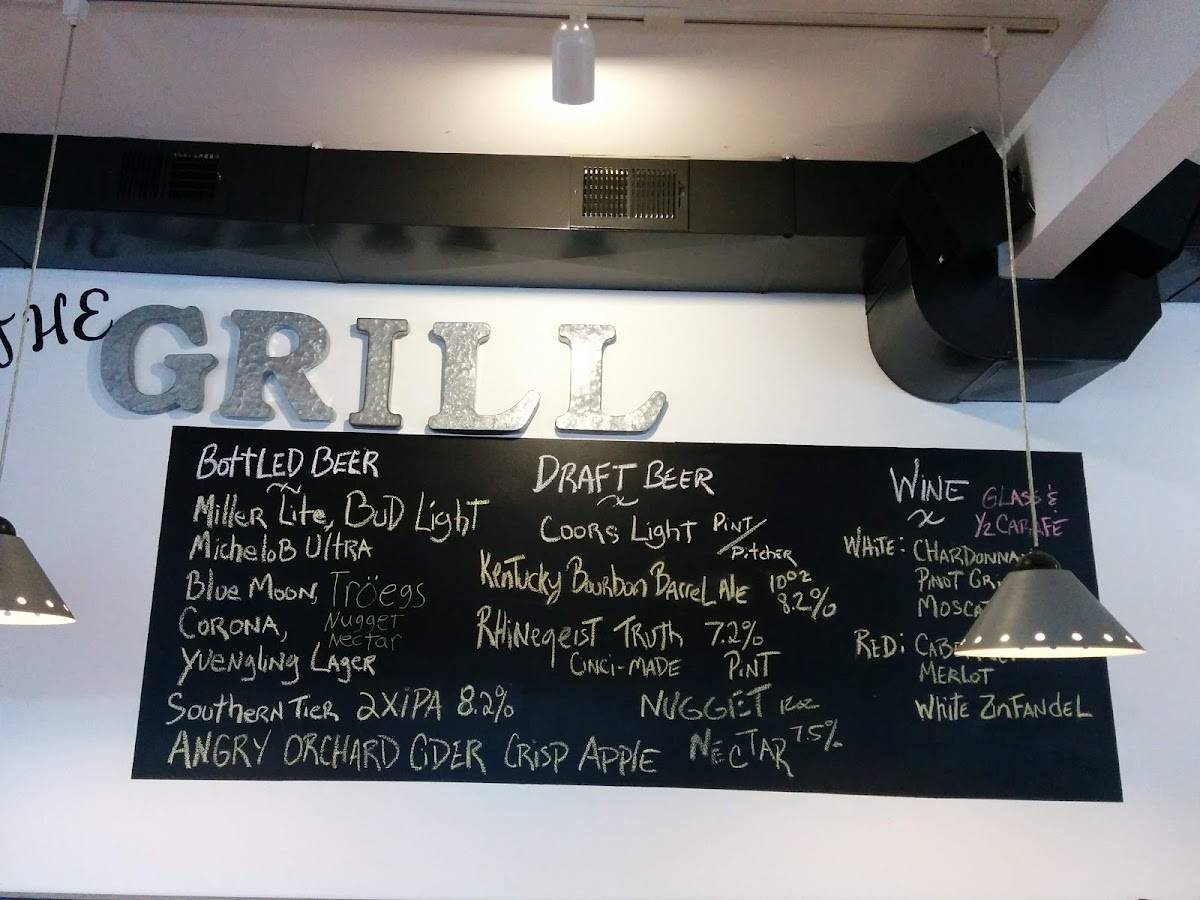 THE GRILL
BOTTLED BEER
Miller Lite, BUD Light
MICHELOB UltRA
Blue Moon, Tröegs
CORONA, Nugget
Nectar
YUENGLING LAGER
SOUTHERN TIER 2XIPA 8.2%
ANGRY ORCHARD CIDER CRISP APPLE
DRAFT BEER
COORS LIGHT PINT/
Pitcher
KENTUCKY BOURBON BARREL ALE 10oz
8.2%
RHINEGEIST TRUTH 7.2%
CINCI-MADE PINT
NUGGET 12oz
NECTAR 7.5%
WINE GLASS &
1/2 CARAFE
WHITE: CHARDONNA
PINOT GRI
MOSCAT
RED:
MERLOT
WHITE ZINFANDEL